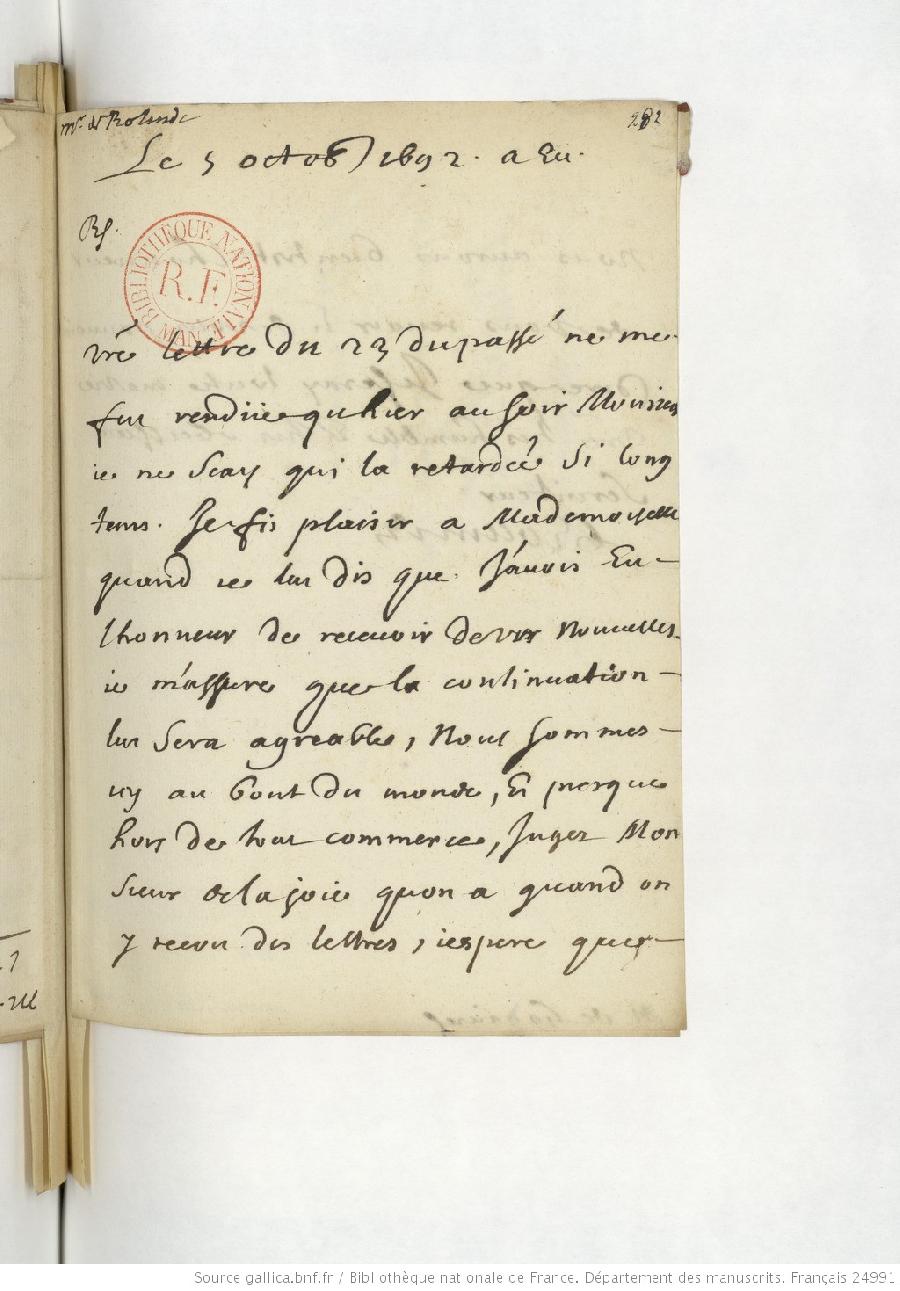 mr de Rolinde
282
Le 5 octob 1692. a Eu.
Rs.
BIBLIOTHEQUE NATIONALE MAN.
R.F.
vre lettre du 23 du passé ne me
fut rendüe quhier au soir Monsieur
ie ne scay qui la retardée si long
tems. Je fis plaisir a Mademoiselle
quand ie lui dis que J'avois Eu
lhonneur de recevoir de vos nouvelles
ie m'assure que la continuation
lui sera agreable, nous sommes
icy au bout du monde, Et presque
hors de tout commerce, Jugez Mon
sieur de la joie quon a quand on
y recoit des lettres, iespere que
Source gallica.bnf.fr / Bibliothèque nationale de France. Département des manuscrits. Français 24991